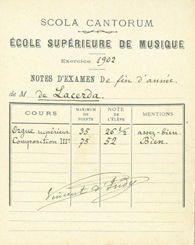 SCOLA CANTORUM
ÉCOLE SUPÉRIEURE DE MUSIQUE
Exercice 1902
NOTES D'EXAMEN De fin d'année.
de M. de Lacerda.
COURS MAXIMUM DE POINTS NOTE DE L'ÉLÈVE MENTIONS
Orgue supérieur 35 26 1/2 assez-bien.
Composition III° 75 52 Bien.
Vincent d'Indy